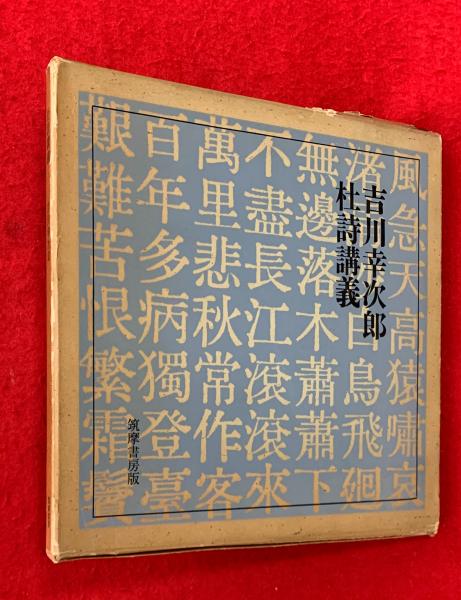 吉川幸次郎
杜詩講義
風急天高猿嘯哀
渚白鳥飛廻
無邊落木蕭蕭下
不盡長江滾滾來
萬里悲秋常作客
百年多病獨登臺
艱難苦恨繁霜鬢
筑摩書房版